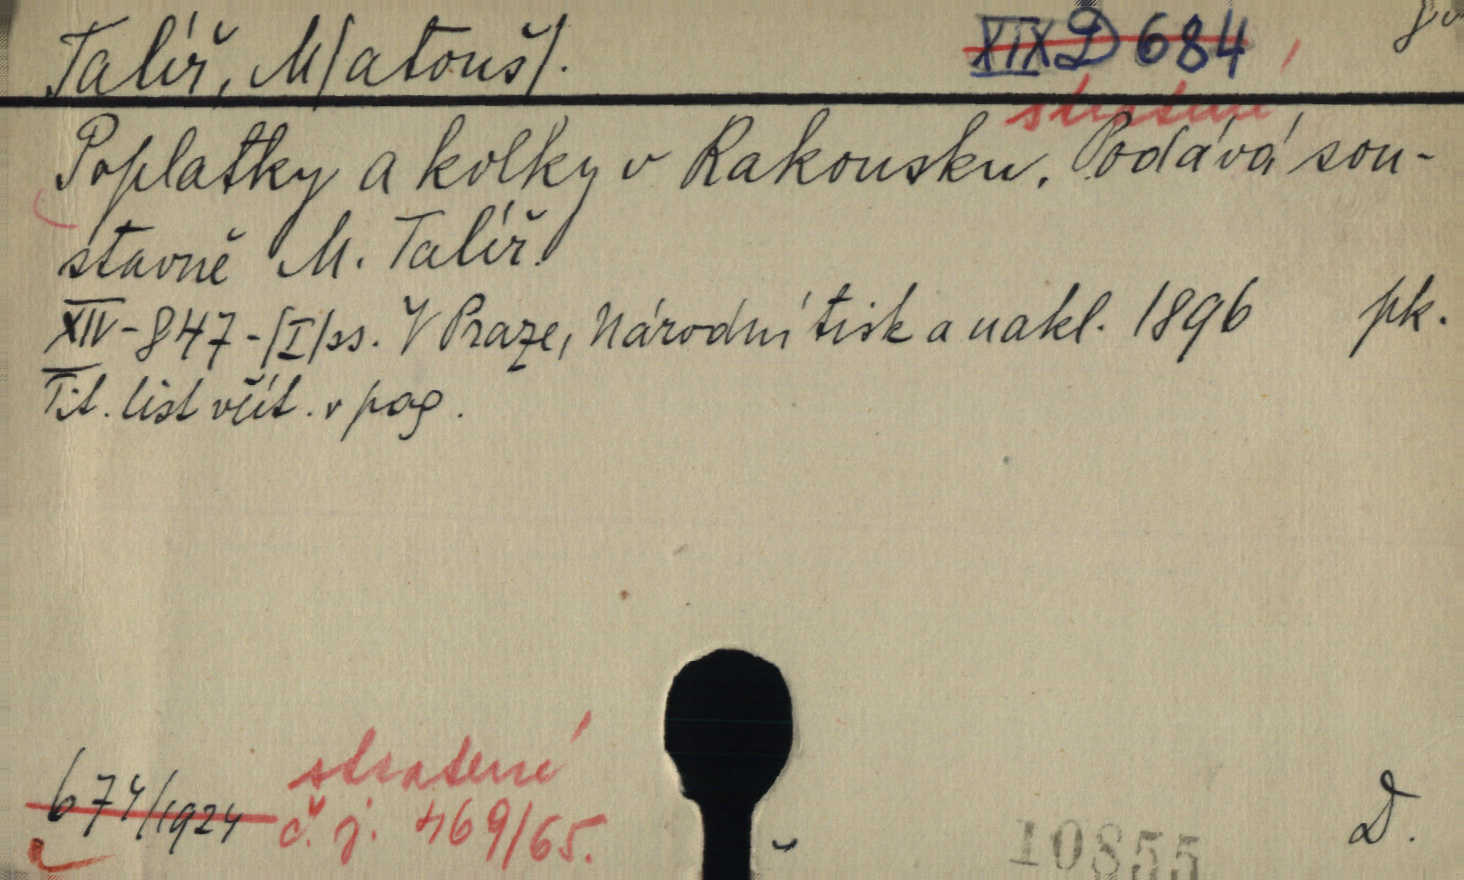 Talíř, M/atouš/. XIX D 684
stratené
Poplatky a kolky v Rakousku. Podává sou-
stavně M. Talíř.
XIV-847-/I/ss. V Praze, Národní tisk a nakl. 1896 pk.
Tit. list včít. v pag.
stratené
674/1924 č. j. 469/65. D.
10855